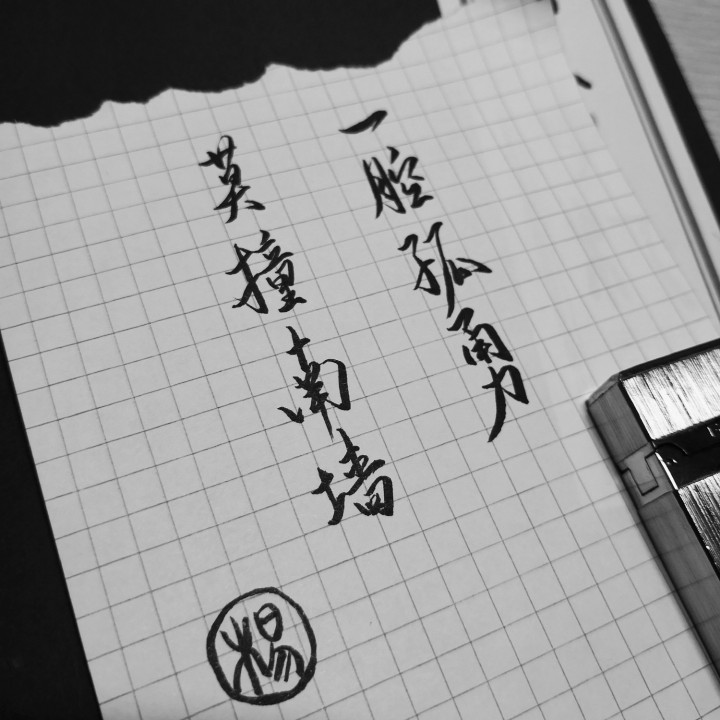 一腔孤勇
莫撞南墙
杨